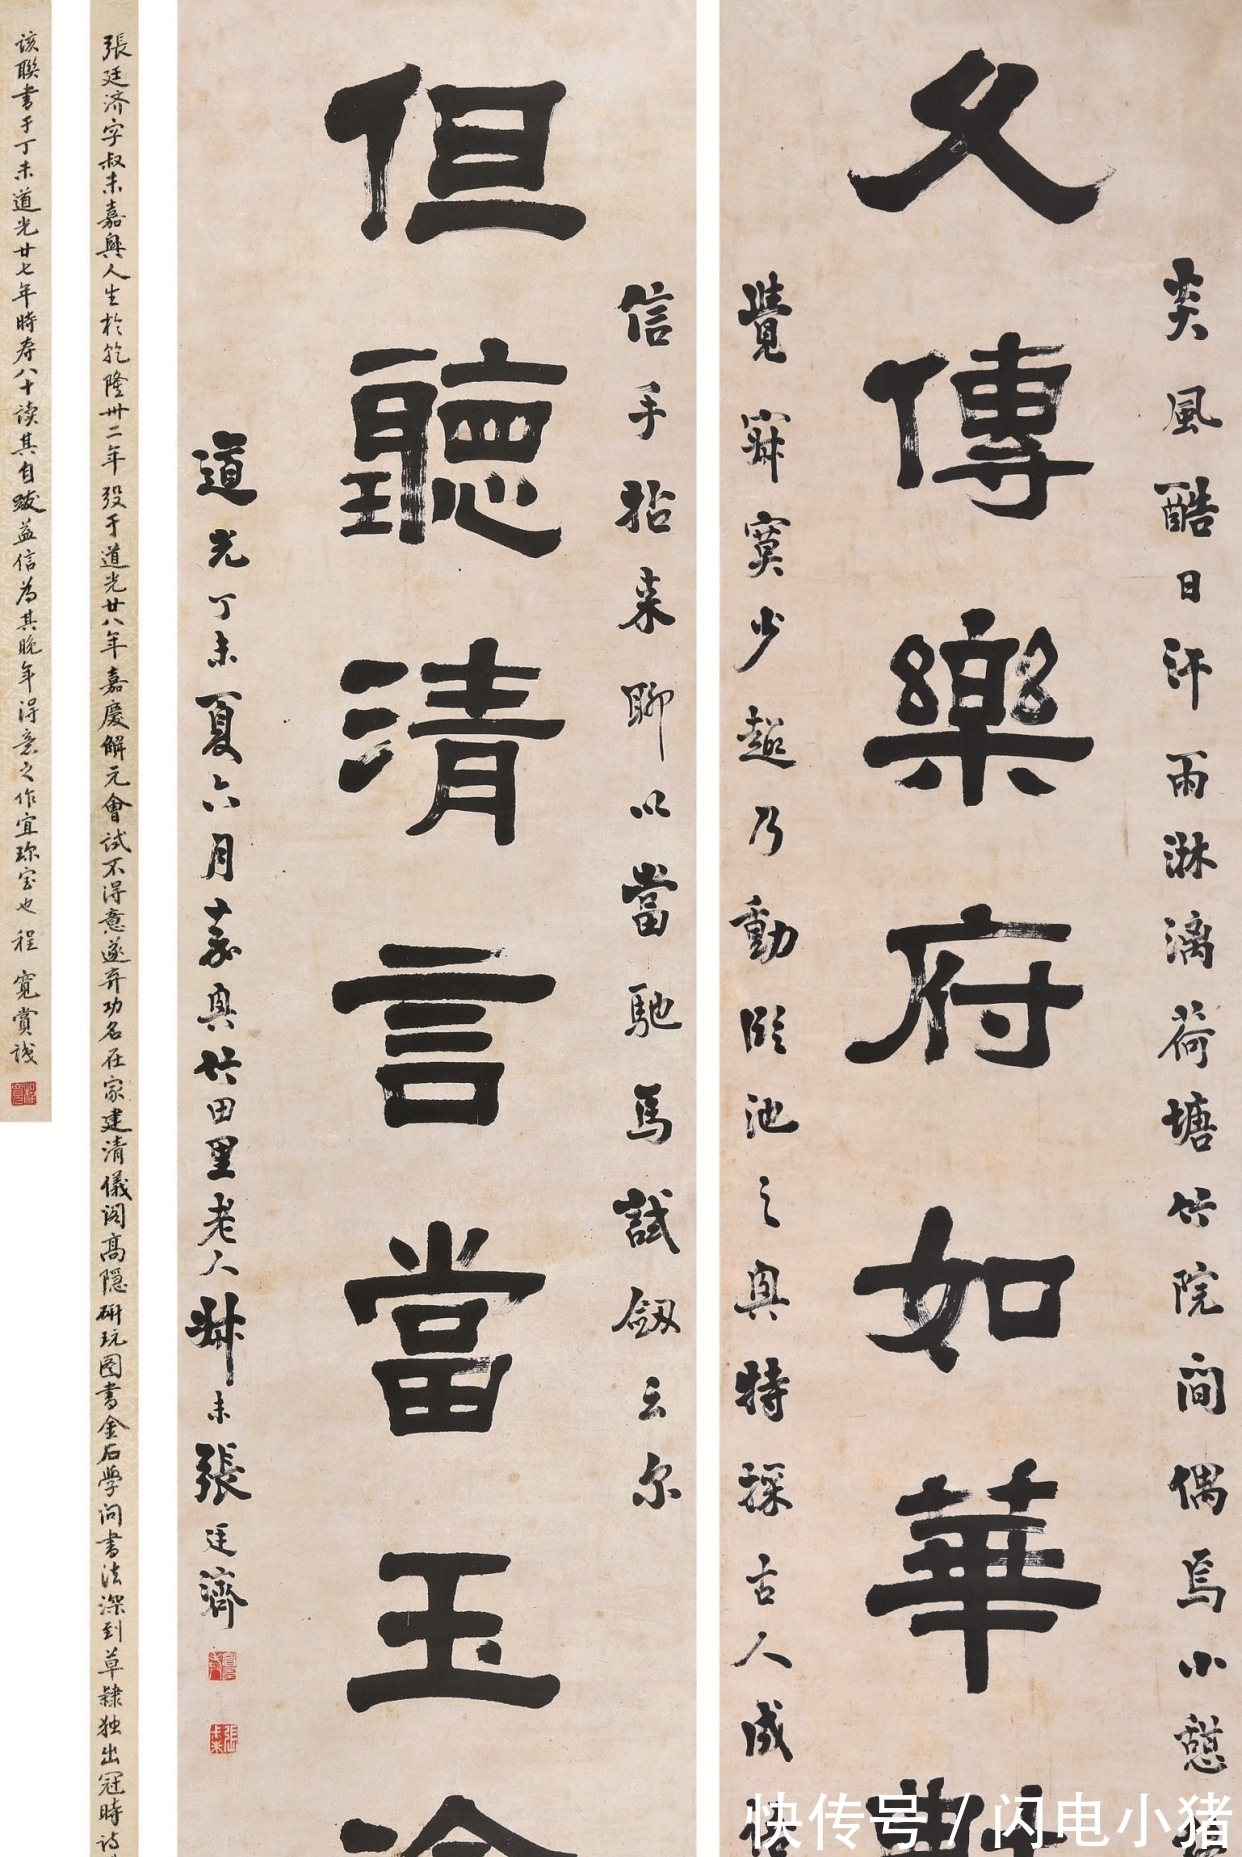 炎風酷日汗雨淋漓荷塘竹院間偶焉小憩
久傳樂府如華
覺寂寞少趣乃動臨池之興特採古人成
信手拈來聊以當馳馬試劔云尔
但聽清言當玉
道光丁未夏六月嘉興竹田里老人叔未張廷濟
張廷济字叔未嘉興人生於乾隆卅二年殁于道光廿八年嘉慶解元會試不得意遂弃功名在家建清儀阁高隐研玩图書金石學问書法深到草隸独出冠時诗
该聯書于丁未道光廿七年時寿八十读其自跋益信为其晚年得意之作宜珎宝也 程寛賞识
快传号 / 闪电小猪